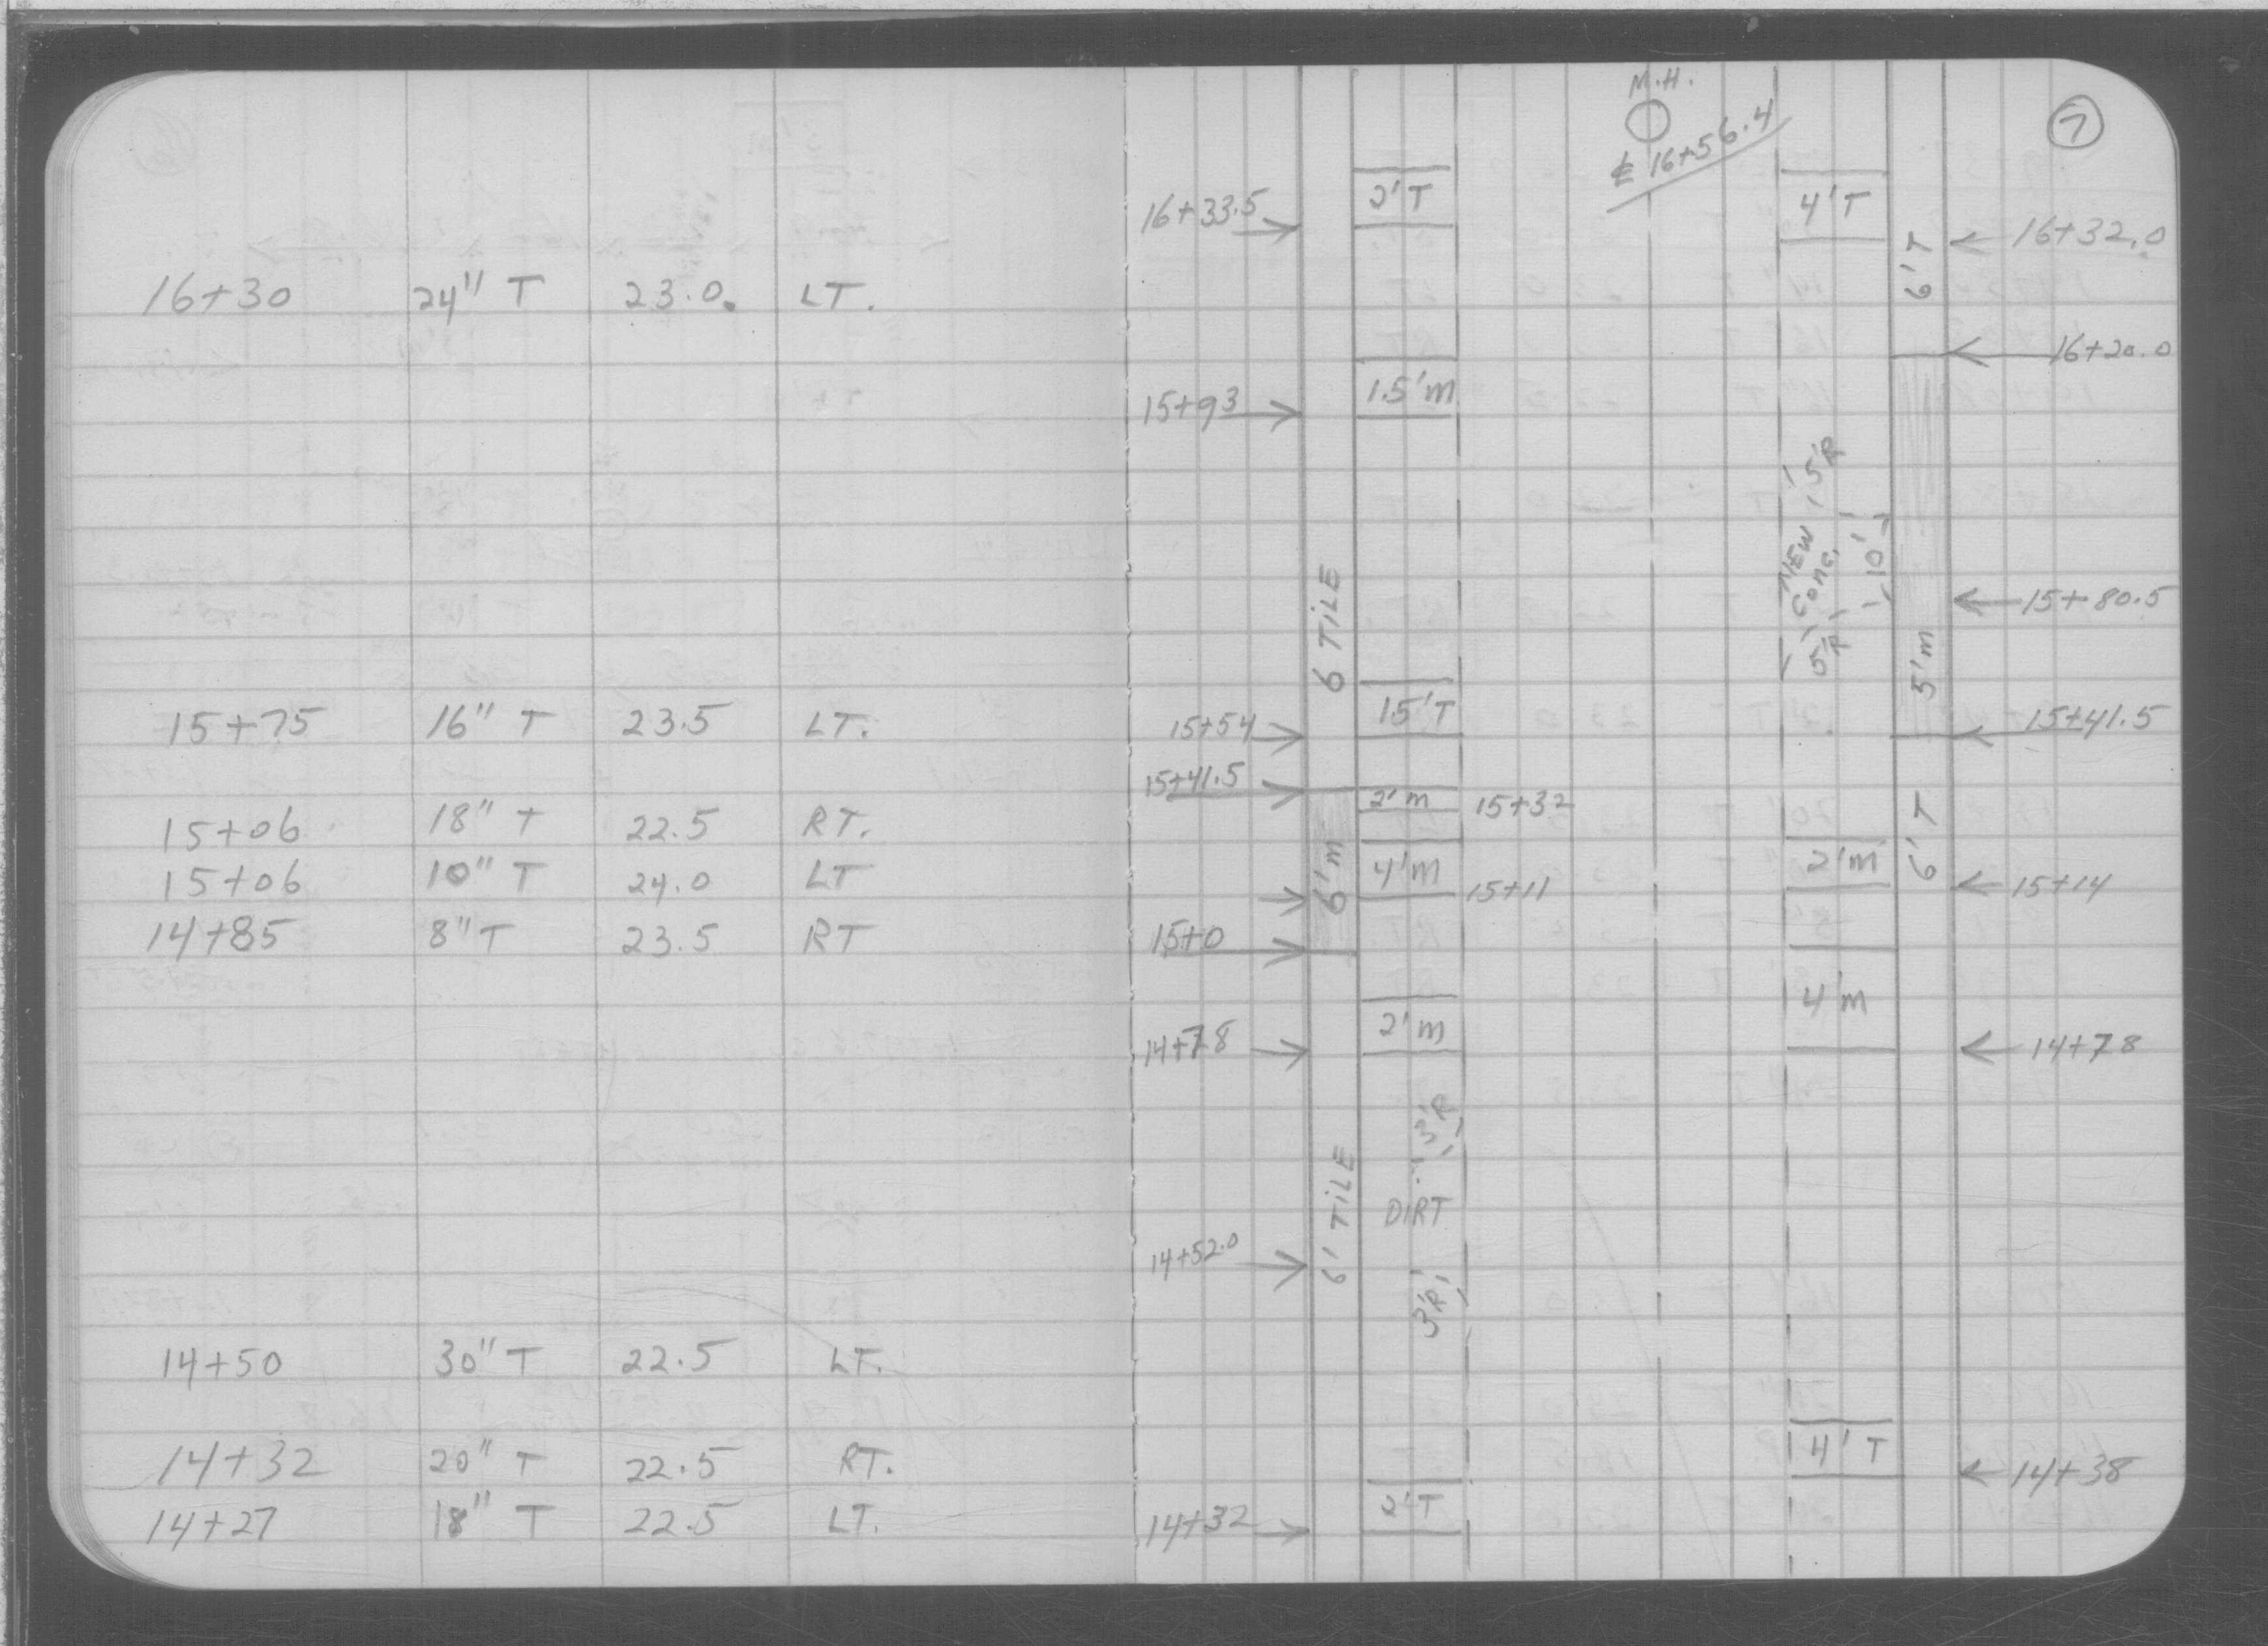 16+30 24" T 23.0. LT.
15+75 16" T 23.5 LT.
15+06 18" T 22.5 RT.
15+06 10" T 24.0 LT
14+85 8" T 23.5 RT
14+50 30" T 22.5 LT.
14+32 20" T 22.5 RT.
14+27 18" T 22.5 LT.
7
M.H.
℄ 16+56.4
16+33.5 2'T 4'T 16+32.0
6'T
16+20.0
15+93 1.5'm
5'R
NEW
CONC.
10'
5'R
15+80.5
6 TILE
5'm
15+54 1.5'T 15+41.5
15+41.5 2'm 15+32
6'T
6'm 4'm 15+11 2'm 15+14
15+0
4'm
14+78 2'm 14+78
3'R
DIRT
6' TILE
14+52.0
3'R
4'T 14+38
14+32 2'T